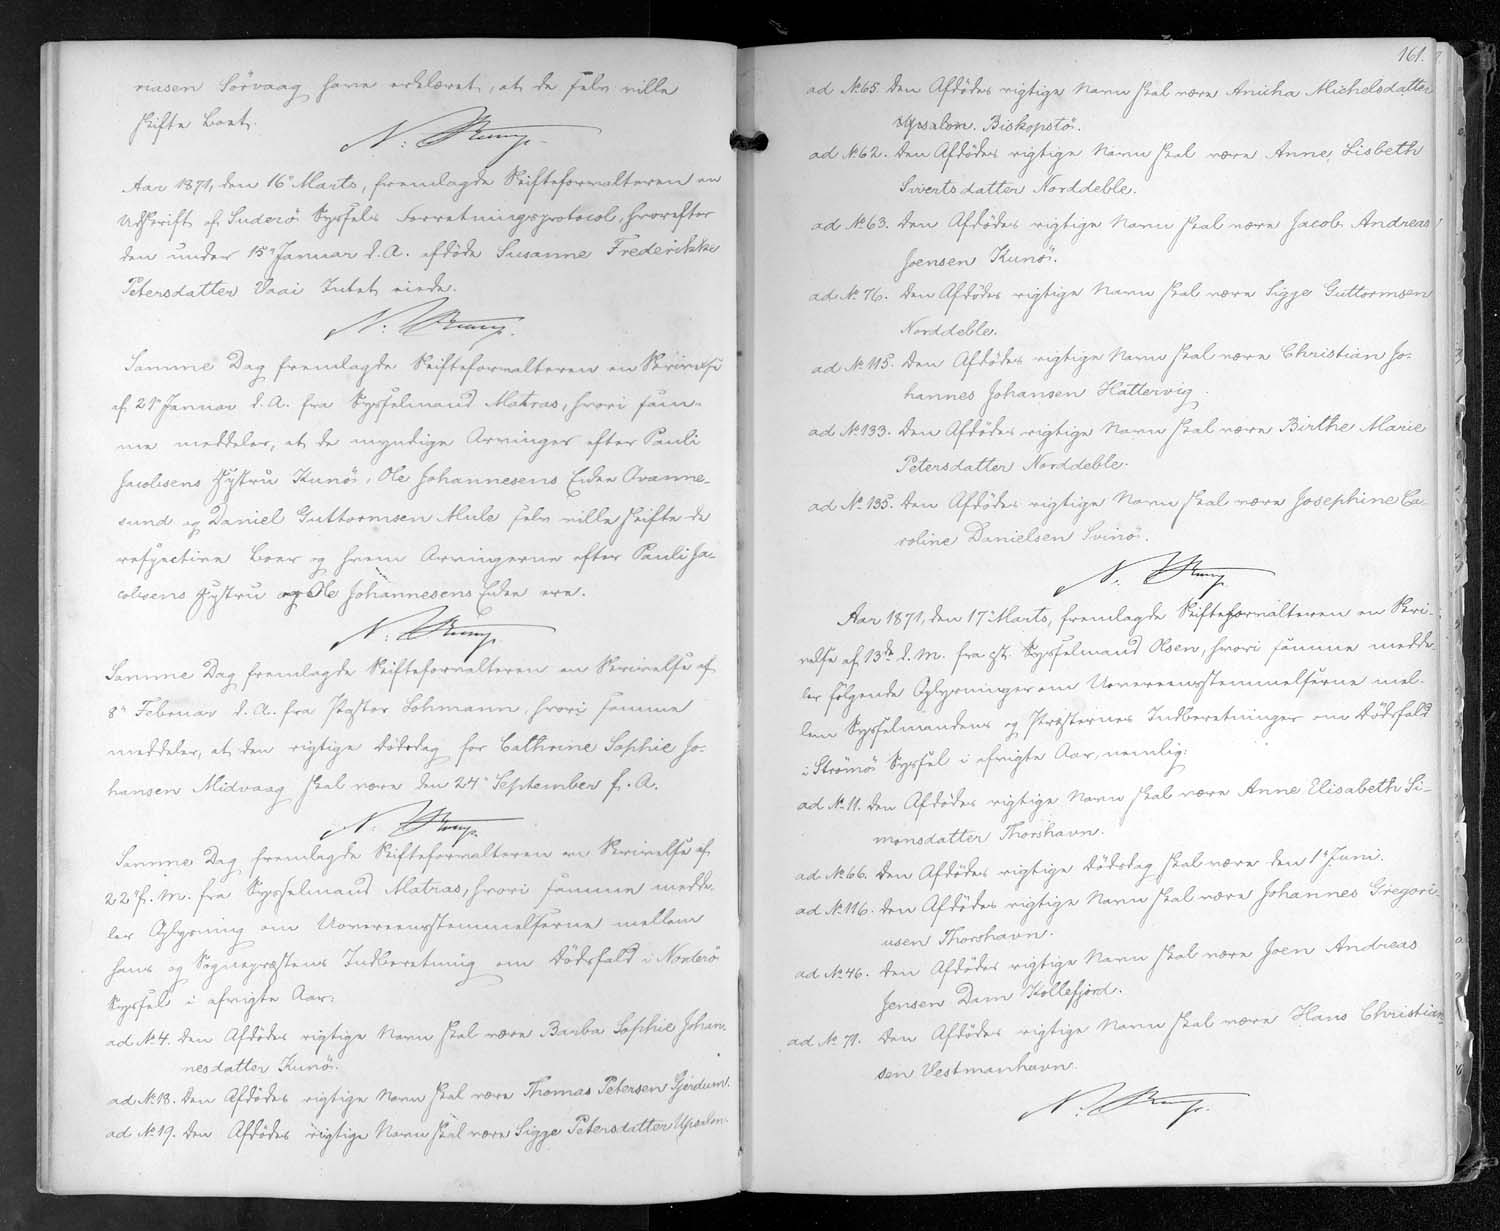 riasen Sörvaag have erklæret, at de selv ville
skifte Boet.
N: Krup.
Aar 1871, den 16de Marts, fremlagde Skifteforvalteren en
Udskrift af Suderö Syssels Forretningsprotocol, hvorefter
den under 15de Januar d. A. afdöde Susanne Frederikke
Petersdatter Vaai Intet eiede.
Samme Dag fremlagde Skifteforvalteren en Skrivelse
af 21de Januar d. A. fra Sysselmand Matras, hvori sam-
me meddeler, at de myndige Arvinger efter Pauli
Jacobsens Hystru Kunö, Ole Johannesens Enke Qvanne-
sund og Daniel Guttormsen Mule selv ville skifte de
respective Boer og hvem Arvingerne efter Pauli Ja-
cobsens Hystru og Ole Johannesens Enke ere.
Samme Dag fremlagde Skifteforvalteren en Skrivelse af
8de Februar d. A. fra Pastor Lohmann, hvori samme
meddeler, at den rigtige Dödsdag for Cathrine Sophie Jo-
hansen Midvaag skal være den 24de September f. A.
Samme Dag fremlagde Skifteforvalteren en Skrivelse af
22de f. M. fra Sysselmand Matras, hvori samme medde-
ler Oplysning om Uovereensstemmelserne mellem
hans og Sognepræstens Indberetning om Dödsfald i Norderö
Syssel i afvigte Aar:
ad No 4. Den Afdödes rigtige Navn skal være Barba Sophie Johan-
nesdatter Kunö.
ad No 18. Den Afdödes rigtige Navn skal være Thomas Petersen Gjerdum.
ad No 19. Den Afdödes rigtige Navn skal være Sigge Petersdatter Upsalon.
161.
ad No 65. Den Afdödes rigtige Navn skal være Anicha Michelsdatter
Upsalon. Biskopstö.
ad No 62. Den Afdödes rigtige Navn skal være Anne Lisbeth
Sivertsdatter Norddeble.
ad No 63. Den Afdödes rigtige Navn skal være Jacob Andreas
Joensen Kunö.
ad No 76. Den Afdödes rigtige Navn skal være Sigge Guttormsen
Norddeble.
ad No 115. Den Afdödes rigtige Navn skal være Christian Jo-
hannes Johansen Hattervig.
ad No 133. Den Afdödes rigtige Navn skal være Birthe Marie
Petersdatter Norddeble.
ad No 135. Den Afdödes rigtige Navn skal være Josephine Ca-
roline Danielsen Svinö.
Aar 1871, den 17de Marts, fremlagde Skifteforvalteren en Skri-
velse af 13de d. M. fra cst. Sysselmand Olsen, hvori samme medde-
ler fölgende Oplysninger om Uovereensstemmelserne mel-
lem Sysselmandens og Præsternes Indberetninger om Dödsfald
i Strömö Syssel i afvigte Aar, nemlig:
ad No 11. Den Afdödes rigtige Navn skal være Anne Elisabeth Si-
monsdatter Thorshavn.
ad No 66. Den Afdödes rigtige Dödsdag skal være den 1ste Juni.
ad No 116. Den Afdödes rigtige Navn skal være Johannes Gregori-
usen Thorshavn.
ad No 46. Den Afdödes rigtige Navn skal være Joen Andreas
Jensen Dam Kollefjord.
ad No 71. Den Afdödes rigtige Navn skal være Hans Christian-
sen Vestmanhavn.